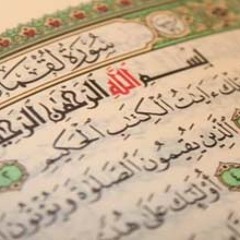 سُورَةُ لُقْمَانَ
بِسْمِ ٱللَّهِ ٱلرَّحْمَٰنِ ٱلرَّحِيمِ
تِلْكَ ءَايَٰتُ ٱلْكِتَٰبِ ٱلْحَكِيمِ
ٱلَّذِينَ يُقِيمُونَ ٱلصَّلَوٰةَ وَيُؤْتُونَ
أُو۟لَٰٓئِكَ عَلَىٰ هُدًى